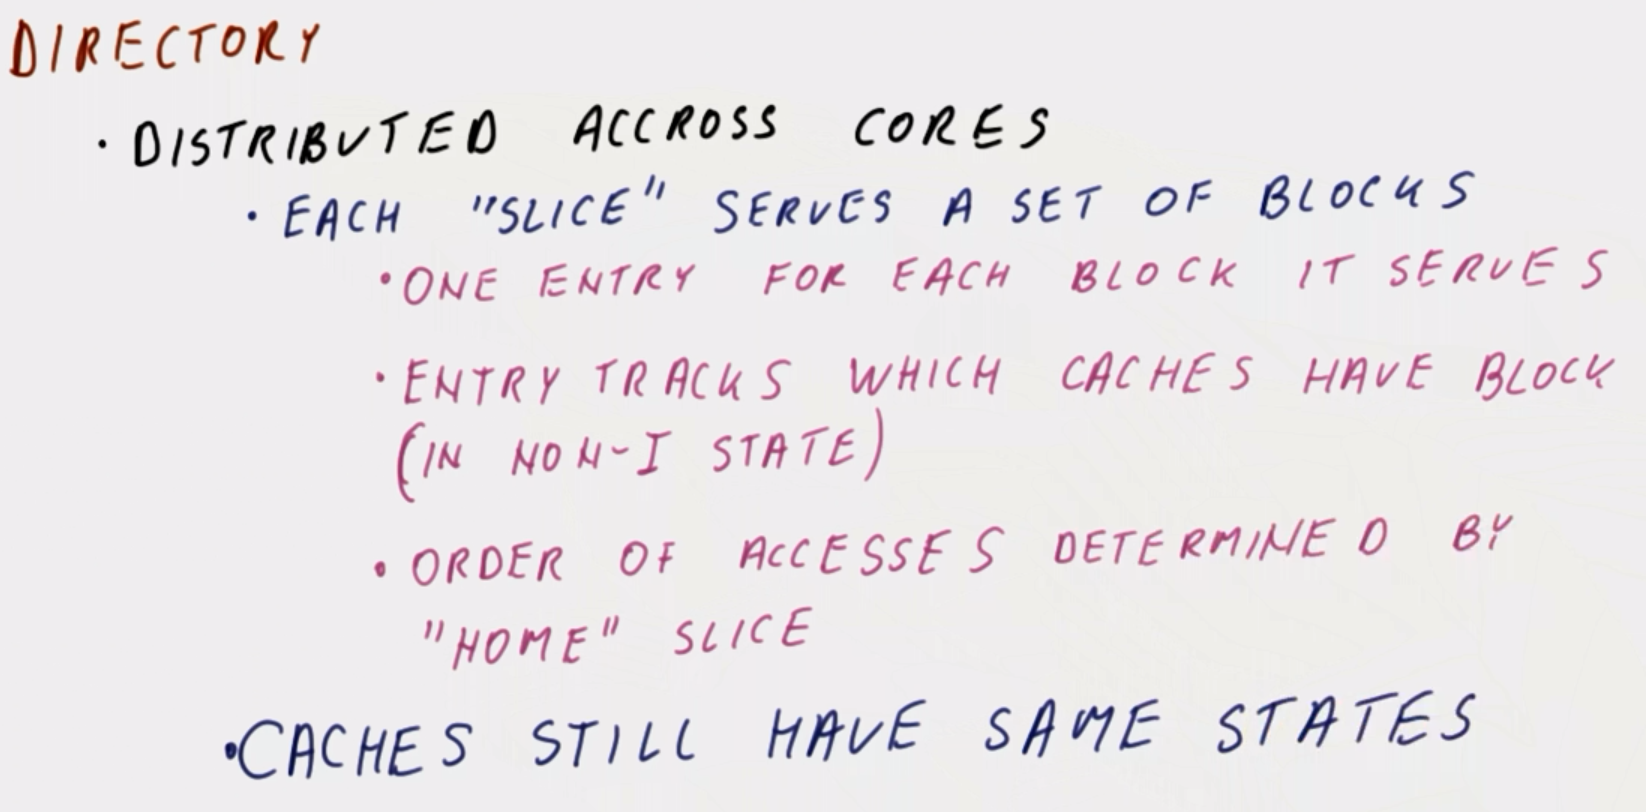 DIRECTORY
· DISTRIBUTED ACCROSS CORES
· EACH "SLICE" SERVES A SET OF BLOCKS
· ONE ENTRY FOR EACH BLOCK IT SERVES
· ENTRY TRACKS WHICH CACHES HAVE BLOCK
(IN NON-I STATE)
· ORDER OF ACCESSES DETERMINED BY
"HOME" SLICE
· CACHES STILL HAVE SAME STATES